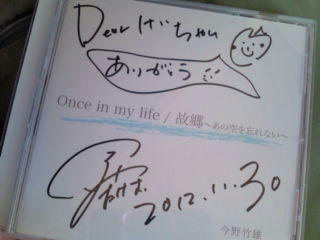 Dear けいちゃん
ありがとう
Once in my life / 故郷～あの空を忘れない～
2012.11.30
今野竹雄